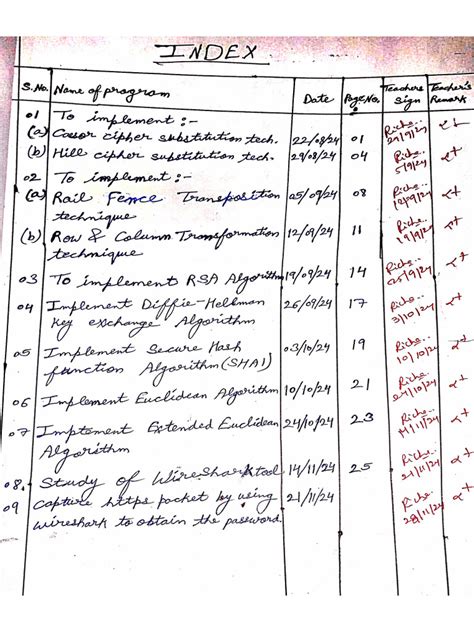 INDEX
S.No. Name of program Date Page No. Teachers Sign Teacher's Remark
01 To implement :-
(a) Caesor cipher substitution tech. 22/08/24 01 Riche.. 29/9/24
(b) Hill cipher substitution tech. 29/08/24 04 Riche.. 5/9/24
02 To implement :-
(a) Rail Fence Transposition technique 05/09/24 08 Riche..
(b) Row & Column Transformation technique 12/09/24 11 Riche.. 19/9/24
03 To implement RSA Algorithm 19/09/24 14 Riche..
04 Implement Diffie-Hellman Key exchange Algorithm 26/09/24 17 Riche.. 3/10/24
05 Implement Secure Hash function Algorithm (SHA1) 03/10/24 19 Riche.. 10/10/24
06 Implement Euclidean Algorithm 10/10/24 21 Riche.. 24/10/24
07 Implement Extended Euclidean Algorithm 24/10/24 23 Riche.. 14/11/24
08. Study of Wireshark tool 14/11/24 25 Riche.. 21/11/24
09 Capture https packet by using wireshark to obtain the password. 21/11/24 Riche.. 28/11/24